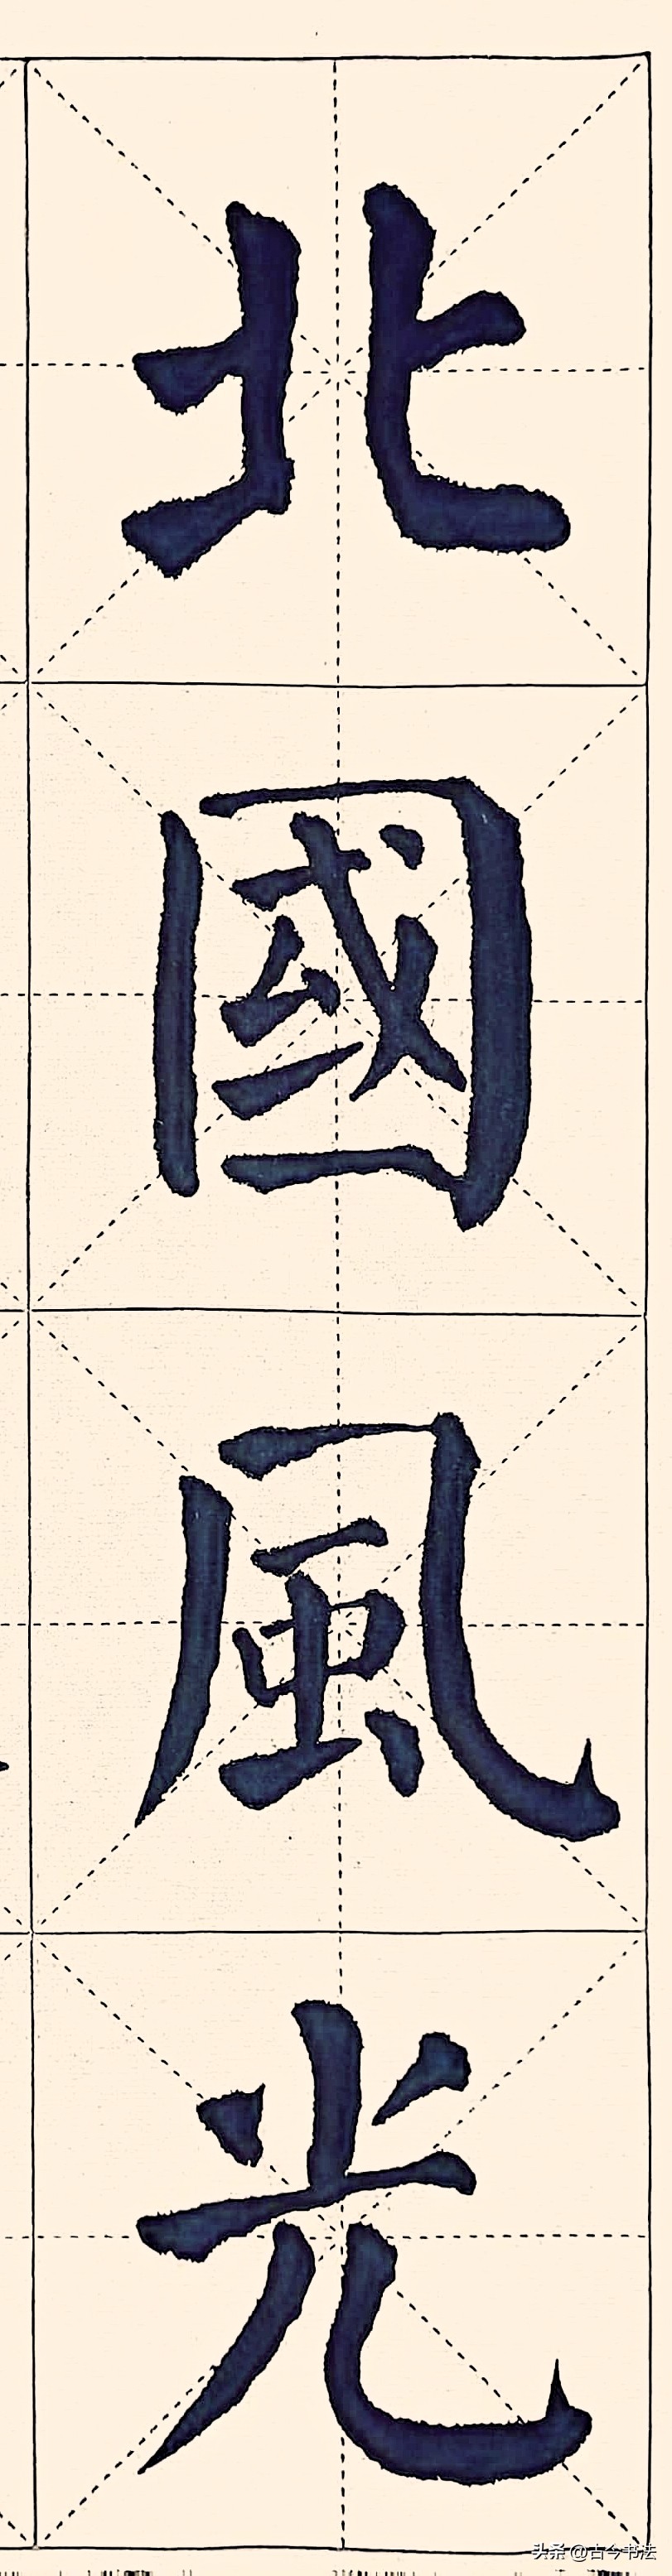 北國風光
头条 @古今书法